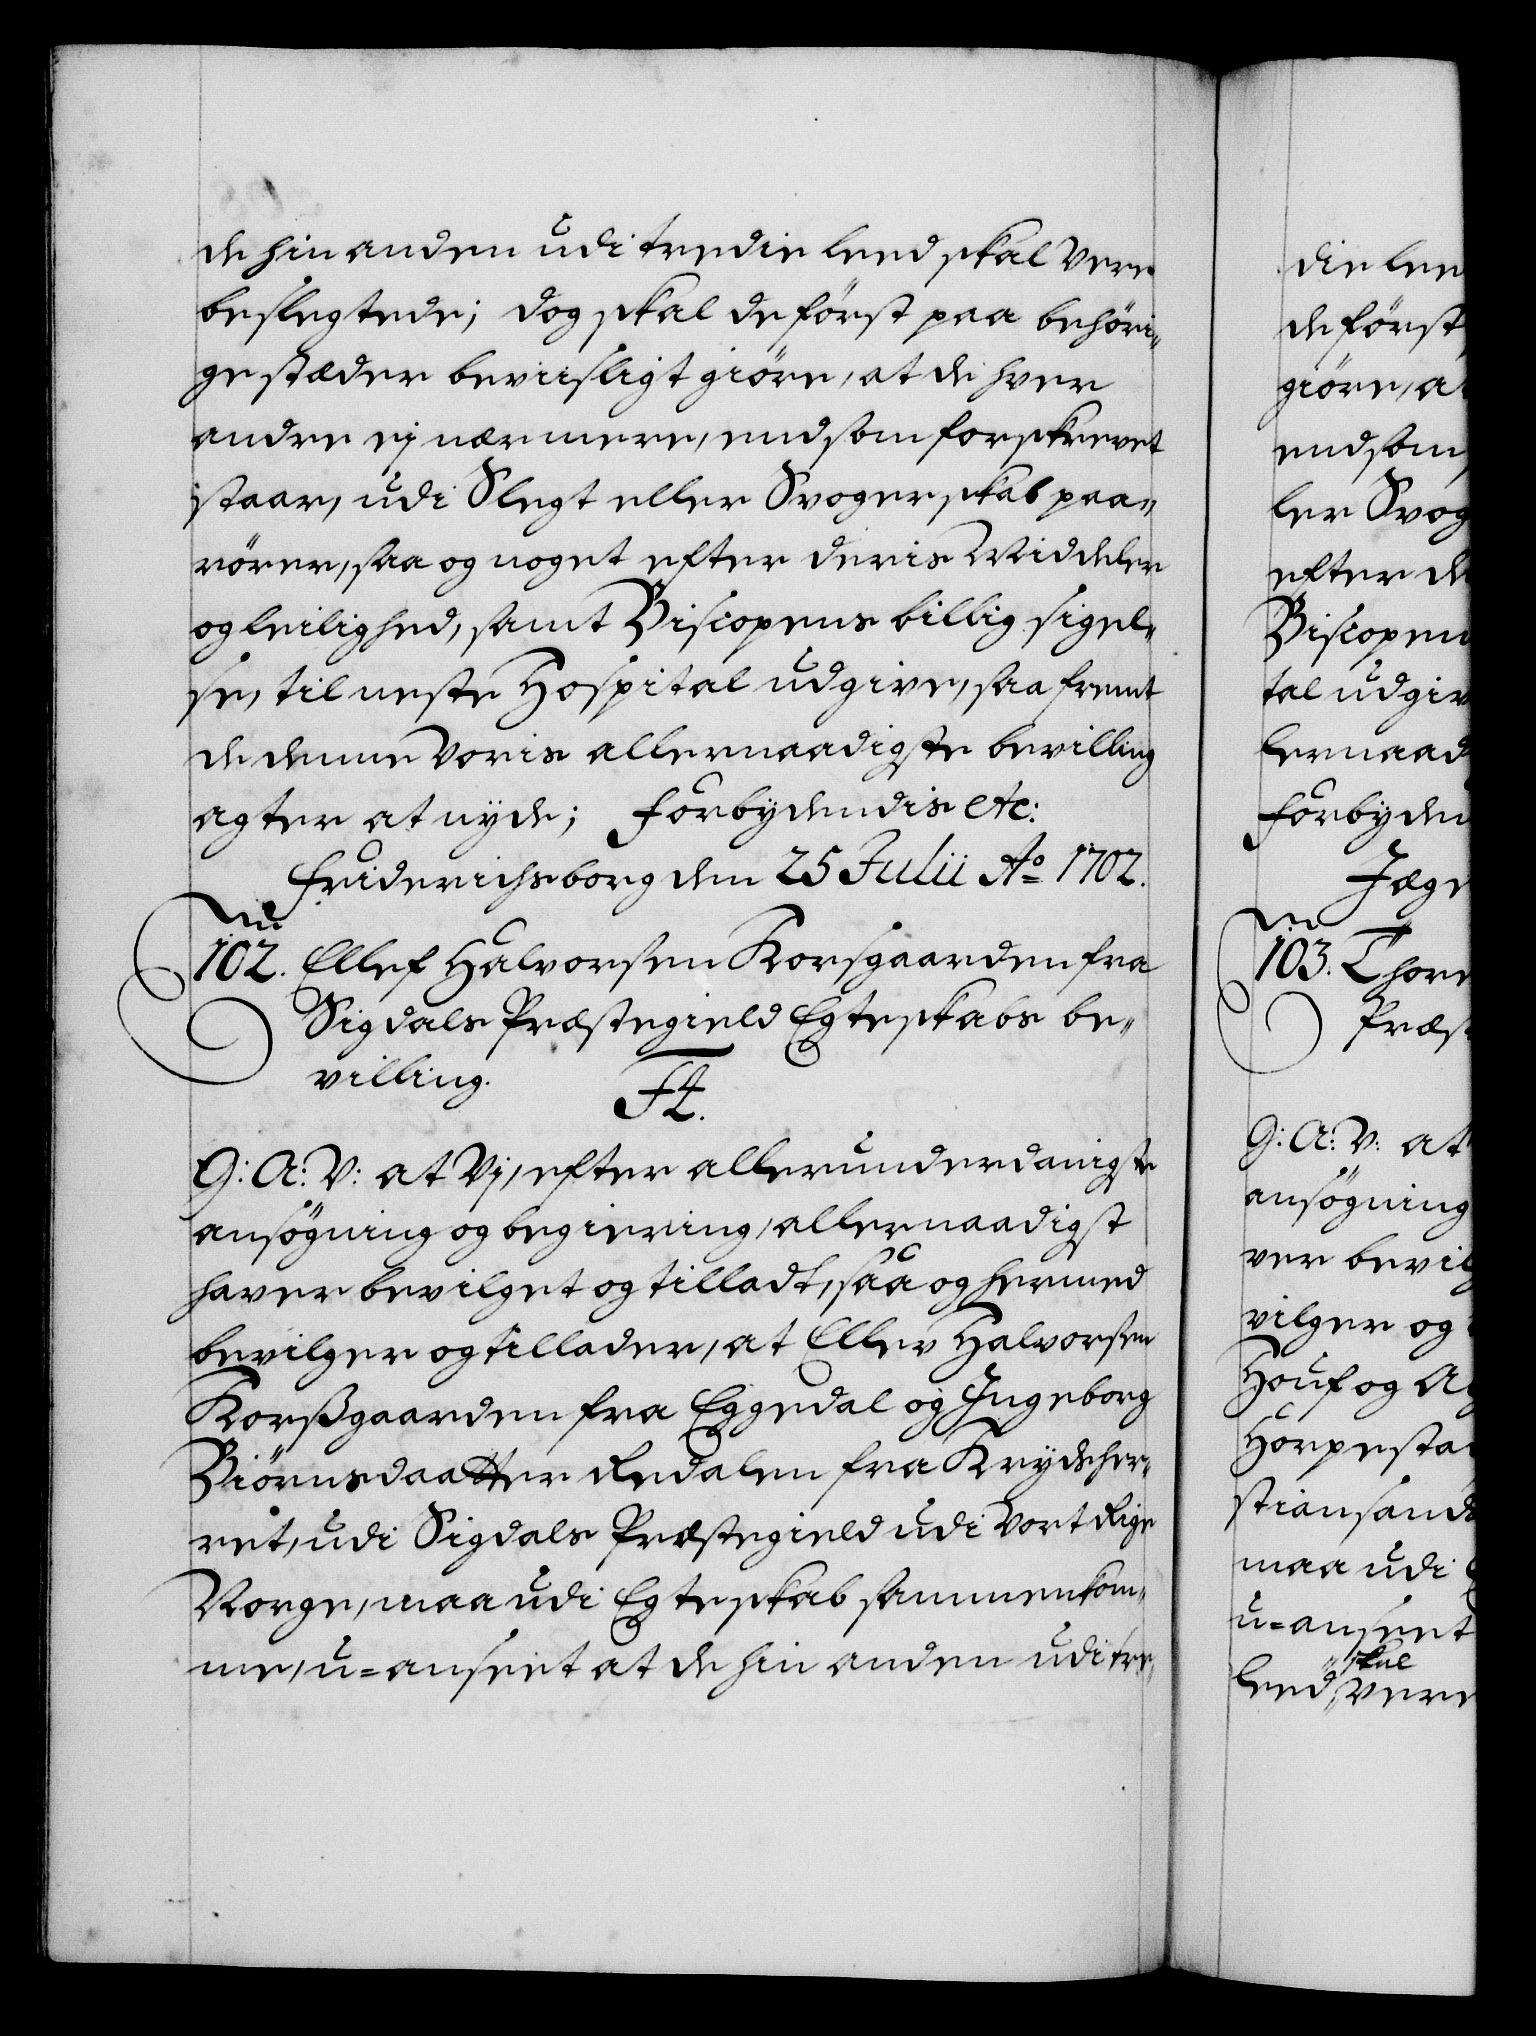 de hin anden udi tredie leed skal vere
beslegtede; dog skal de först paa behöri„
ge stæder beviisligt giöre, at de hver
andre ej nærmere, end som forskrevet
staar, udi Slegt eller Svogerskab paa„
rörer, saa og noget efter deris Middeler
og leilighed, samt Biscopens billig sigel„
se, til neste Hospital udgive, saa fremt
de denne Voris allernaadigste bevilling
agter at nyde; Forbydendis etc:
Friderichsborg den 25 Julii Ao 1702.
102. Ellef Halvorsen Korsgaarden fra
Sigdals Præstegield Egteskabs be„
villing.
F4.
G: A: V: at Vj, efter allerunderdanigste
ansögning og begiering, allernaadigst
haver bevilget og tilladt, saa og hermed
bevilger og tillader, at Ellev Halvorsen
Korßgaarden fra Eggedal og Ingeborg
Biörnsdaatter Redalen fra Krydsher„
ret, udi Sigdals Præstegield udi Vort Rige
Norge, maa udi Egteskab sammenkom„
me, u=anseet at de hin anden udi tre„
die lee
de först
giöre, a
end som
ler Svog
efter de
Biscopen
tal udgiv
lernaad
Forbyden
Jæge
103. Thore
Præst
G: A: V: at
ansögning
ver bevilg
vilger og
Houf og A
Horpesta
stiansands
maa udi
u=anseet
skal
leed, vere